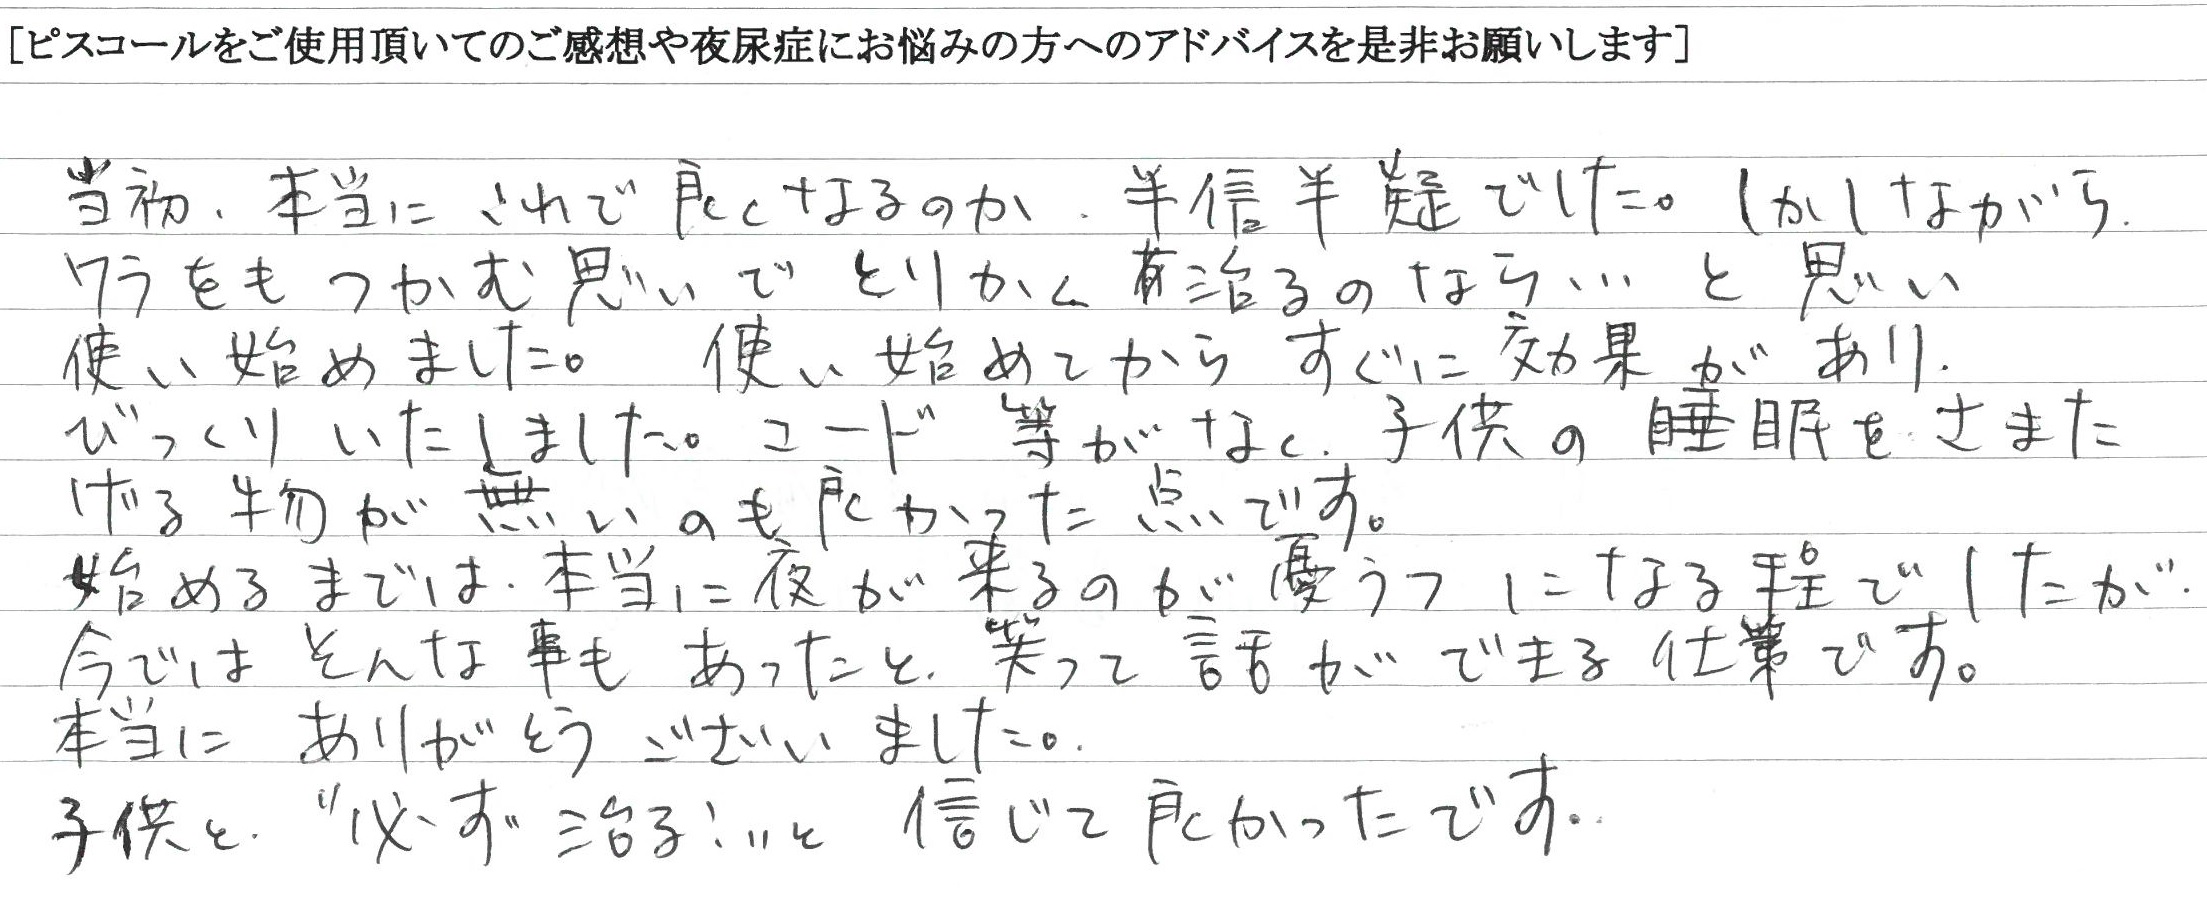 [ピスコールをご使用頂いてのご感想や夜尿症にお悩みの方へのアドバイスを是非お願いします]
当初、本当にこれで良くなるのか、半信半疑でした。しかしながら、
ワラをもつかむ思いでとりかく治るのなら…と思い
使い始めました。 使い始めてからすぐに効果があり、
びっくりいたしました。コード等がなく、子供の睡眠をさまた
げる物が無いのも良かった点です。
始めるまでは、本当に夜が来るのが憂うつになる程でしたが、
今ではそんな事もあったと、笑って話ができる仕業です。
本当にありがとうございました。
子供と、"必ず治る!"と信じて良かったです。